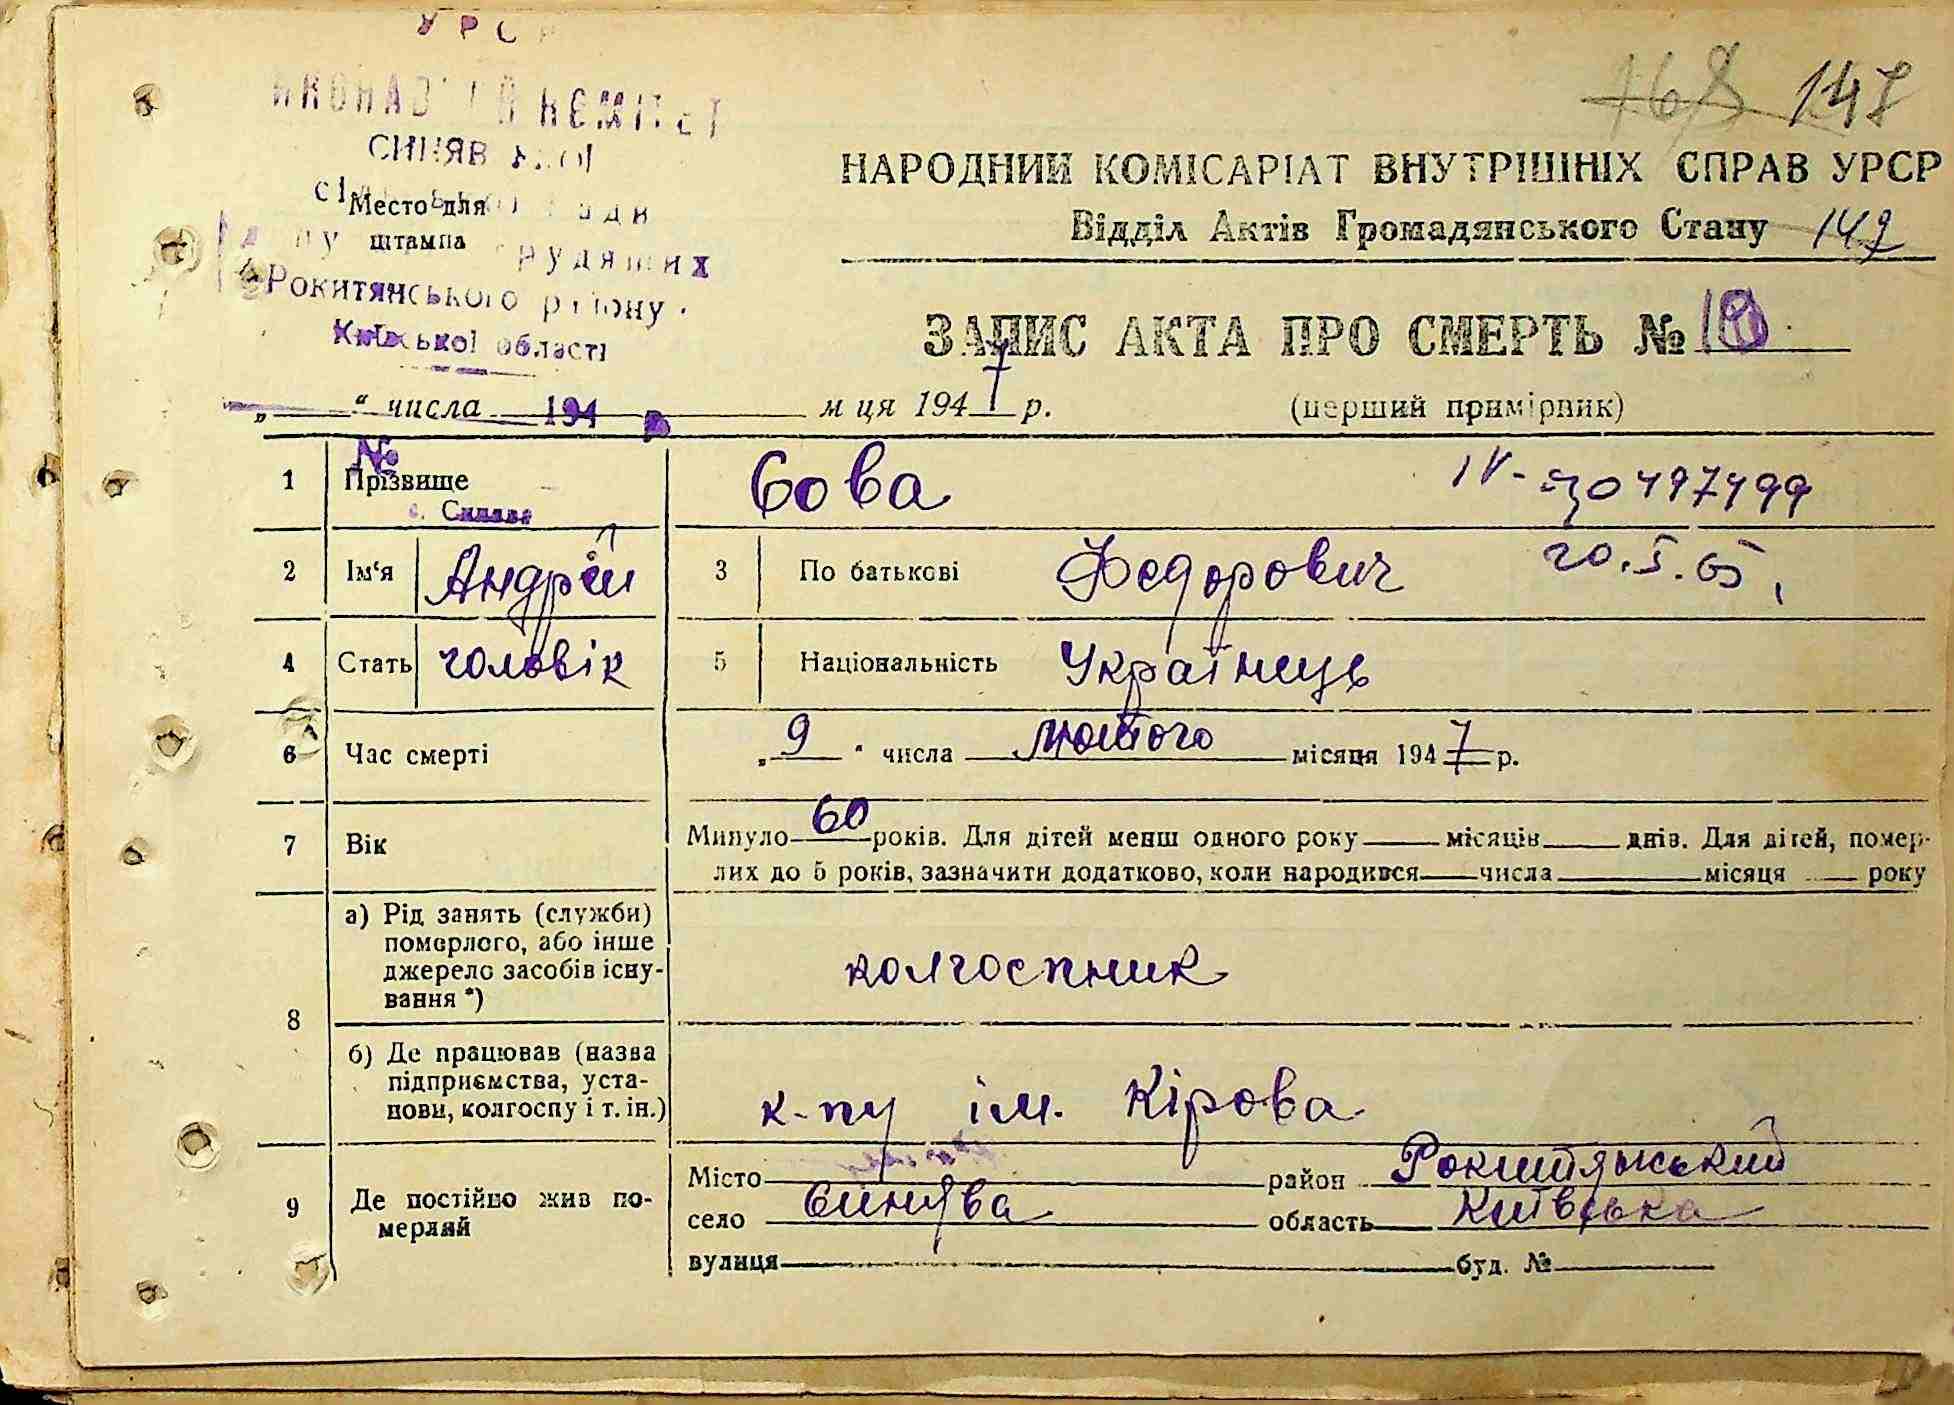 УРСР
КОМІТЕТ
168 148
НАРОДНИЙ КОМІСАРІАТ ВНУТРІШНІХ СПРАВ УРСР
Відділ Актів Громадянського Стану 147
Место для
штампа
трудящих
Рокитянського району
Київської області
ЗАПИС АКТА ПРО СМЕРТЬ №
„ “ числа 194 м ця 1947 р. (перший примірник)
№
1 Прізвище Сова
с. Синява
2 Ім‘я Андрій 3 По батькові Федорович 20.5.65
4 Стать чоловік 5 Національність Українець
6 Час смерті „9“ числа лютого місяця 1947 р.
7 Вік Минуло 60 років. Для дітей менш одного року місяців днів. Для дітей, помер-
лих до 5 років, зазначити додатково, коли народився числа місяця року
8 а) Рід занять (служби)
померлого, або інше
джерело засобів існу-
вання *)
колгоспник
б) Де працював (назва
підприємства, уста-
нови, колгоспу і т. ін.)
к-пу ім. Кірова
9 Де постійно жив по-
мерлий
Місто район Рокитянський
село Синява область Київська
вулиця буд. №